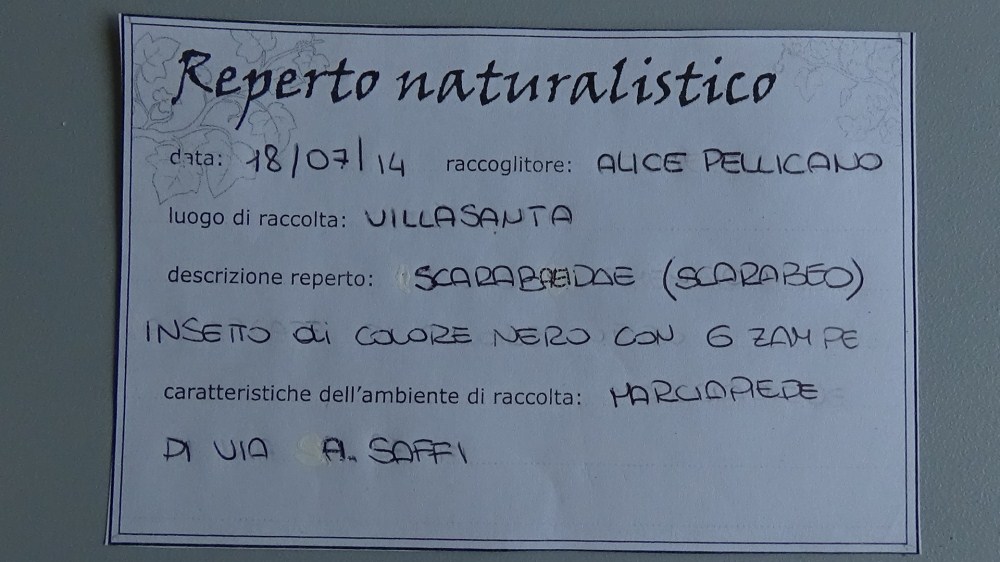 Reperto naturalistico
data: 18/07/14 raccoglitore: ALICE PELLICANO
luogo di raccolta: VILLASANTA
descrizione reperto: SCARABAEIDAE (SCARABEO)
INSETTO di COLORE NERO CON 6 ZAMPE
caratteristiche dell'ambiente di raccolta: MARCIAPIEDE
DI VIA A. SAFFI